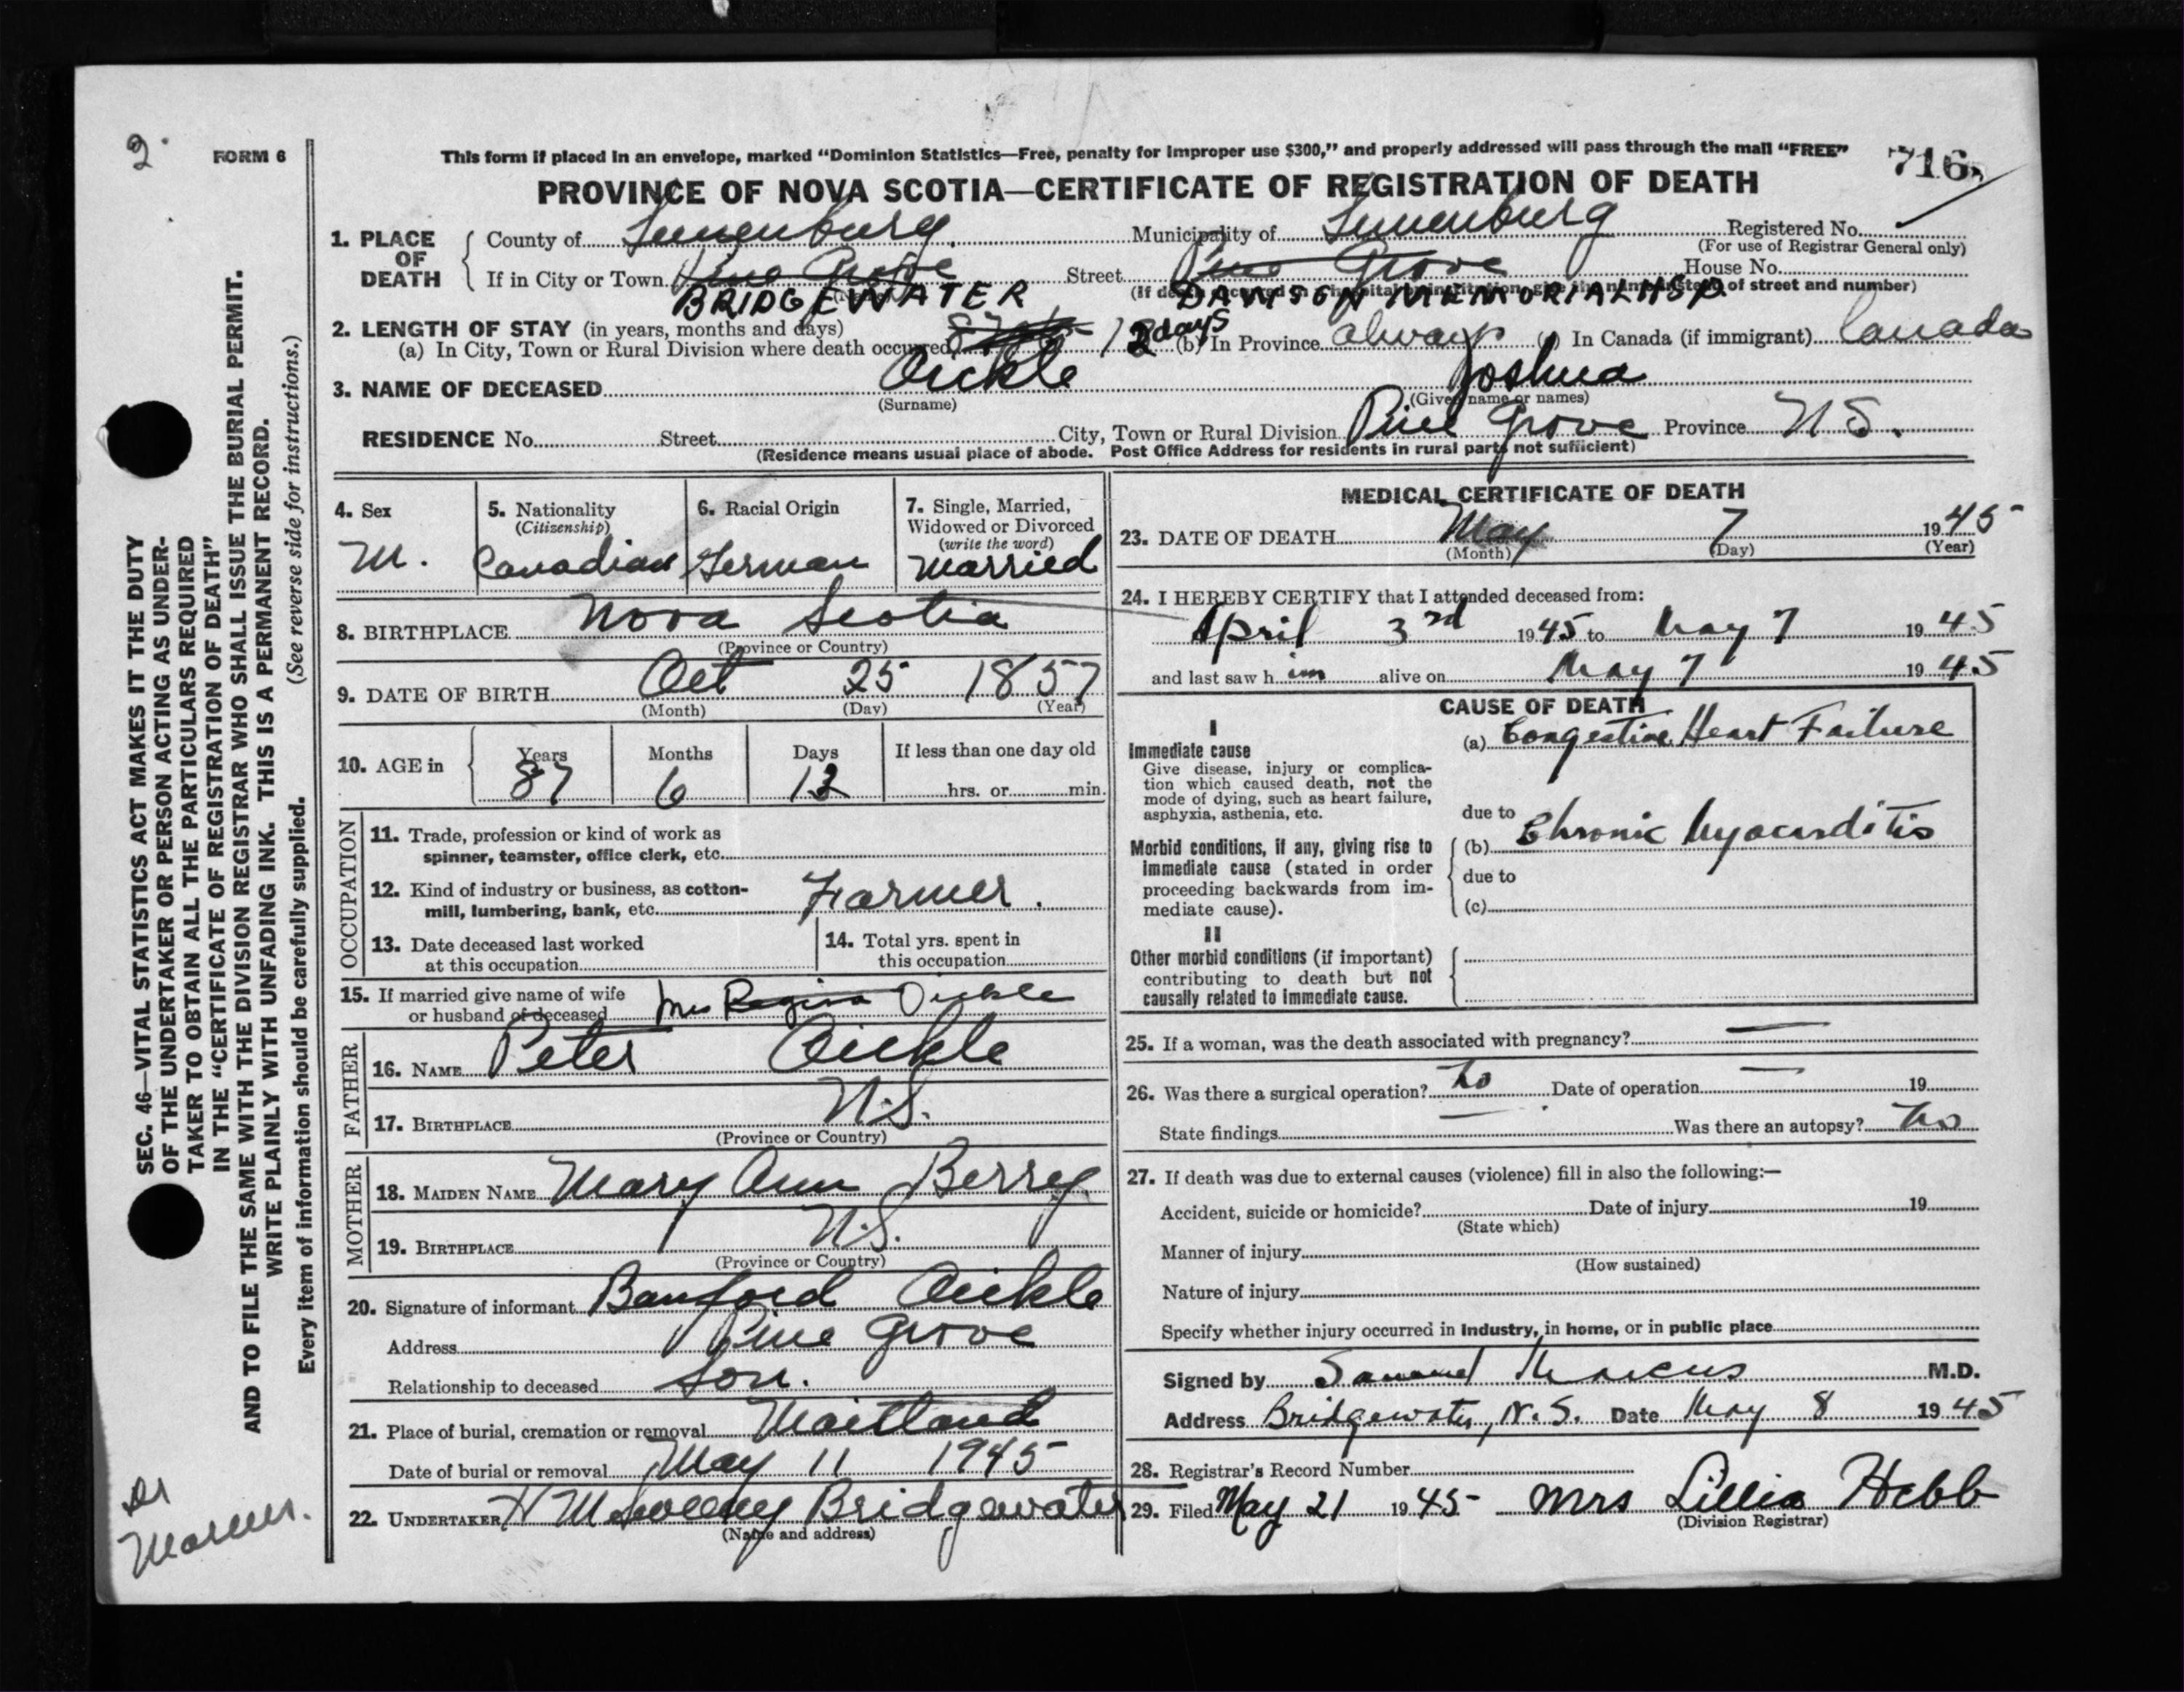 2
FORM 6
This form if placed in an envelope, marked “Dominion Statistics—Free, penalty for improper use $300,” and properly addressed will pass through the mail “FREE”
716
PROVINCE OF NOVA SCOTIA—CERTIFICATE OF REGISTRATION OF DEATH
1. PLACE OF DEATH
County of Lunenburg. Municipality of Lunenburg Registered No.
(For use of Registrar General only)
If in City or Town Pine Grove Street Pine Grove House No.
BRIDGEWATER DAWSON MEMORIAL HSP.
(If death occurred in a hospital or institution, give the name instead of street and number)
2. LENGTH OF STAY (in years, months and days)
(a) In City, Town or Rural Division where death occurred days (b) In Province always (c) In Canada (if immigrant) Canada
3. NAME OF DECEASED Oickle Joshua
(Surname) (Given name or names)
RESIDENCE No. Street City, Town or Rural Division Pine Grove Province N S.
(Residence means usual place of abode. Post Office Address for residents in rural parts not sufficient)
4. Sex
M.
5. Nationality
(Citizenship)
Canadian
6. Racial Origin
German
7. Single, Married,
Widowed or Divorced
(write the word)
Married
8. BIRTHPLACE Nova Scotia
(Province or Country)
9. DATE OF BIRTH Oct 25 1857
(Month) (Day) (Year)
10. AGE in
Years Months Days If less than one day old
87 6 12 hrs. or min.
OCCUPATION
11. Trade, profession or kind of work as
spinner, teamster, office clerk, etc.
12. Kind of industry or business, as cotton-
mill, lumbering, bank, etc. Farmer.
13. Date deceased last worked
at this occupation
14. Total yrs. spent in
this occupation
15. If married give name of wife
or husband of deceased Mrs Regina Oickle
FATHER
16. NAME Peter Oickle
17. BIRTHPLACE N.S.
(Province or Country)
MOTHER
18. MAIDEN NAME Mary Ann Berrey
19. BIRTHPLACE N.S.
(Province or Country)
20. Signature of informant Banford Oickle
Address Pine Grove
Relationship to deceased Son.
21. Place of burial, cremation or removal Maitland
Date of burial or removal May 11 1945
22. UNDERTAKER H M Sweeny Bridgewater
(Name and address)
MEDICAL CERTIFICATE OF DEATH
23. DATE OF DEATH May 7 1945
(Month) (Day) (Year)
24. I HEREBY CERTIFY that I attended deceased from:
April 3rd 1945 to May 7 1945
and last saw him alive on May 7 1945
CAUSE OF DEATH
I
Immediate cause
Give disease, injury or complica-
tion which caused death, not the
mode of dying, such as heart failure,
asphyxia, asthenia, etc.
(a) Congestive Heart Failure
due to
Morbid conditions, if any, giving rise to
immediate cause (stated in order
proceeding backwards from im-
mediate cause).
(b) Chronic Myocarditis
due to
(c)
II
Other morbid conditions (if important)
contributing to death but not
causally related to immediate cause.
25. If a woman, was the death associated with pregnancy? —
26. Was there a surgical operation? no Date of operation — 19
State findings — Was there an autopsy? no
27. If death was due to external causes (violence) fill in also the following:—
Accident, suicide or homicide? Date of injury 19
(State which)
Manner of injury
(How sustained)
Nature of injury
Specify whether injury occurred in Industry, in home, or in public place
Signed by Samuel Marcus M.D.
Address Bridgewater, N.S. Date May 8 1945
28. Registrar's Record Number
29. Filed May 21 1945 Mrs Lillia Hebb
(Division Registrar)
SEC. 46—VITAL STATISTICS ACT MAKES IT THE DUTY
OF THE UNDERTAKER OR PERSON ACTING AS UNDER-
TAKER TO OBTAIN ALL THE PARTICULARS REQUIRED
IN THE “CERTIFICATE OF REGISTRATION OF DEATH”
AND TO FILE THE SAME WITH THE DIVISION REGISTRAR WHO SHALL ISSUE THE BURIAL PERMIT.
WRITE PLAINLY WITH UNFADING INK. THIS IS A PERMANENT RECORD.
Every item of information should be carefully supplied. (See reverse side for instructions.)
Dr
Marcus.